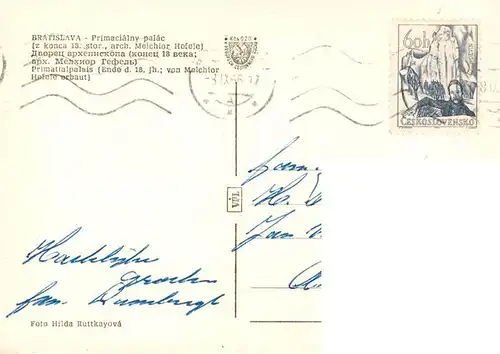 BRATISLAVA - Primaciálny palác
(z konca 18. stor., arch. Melchior Hefele)
Дворец архепископа (конец 18 века;
арх. Мелхиор Гефель)
Primatialpalais (Ende d. 18. Jh.; von Melchior
Hefele erbaut)
60h
ČESKOSLOVENSKO
VPL
fam.
H.
Jan
Hartelijke
groeten
fam.
Foto Hilda Ruttkayová